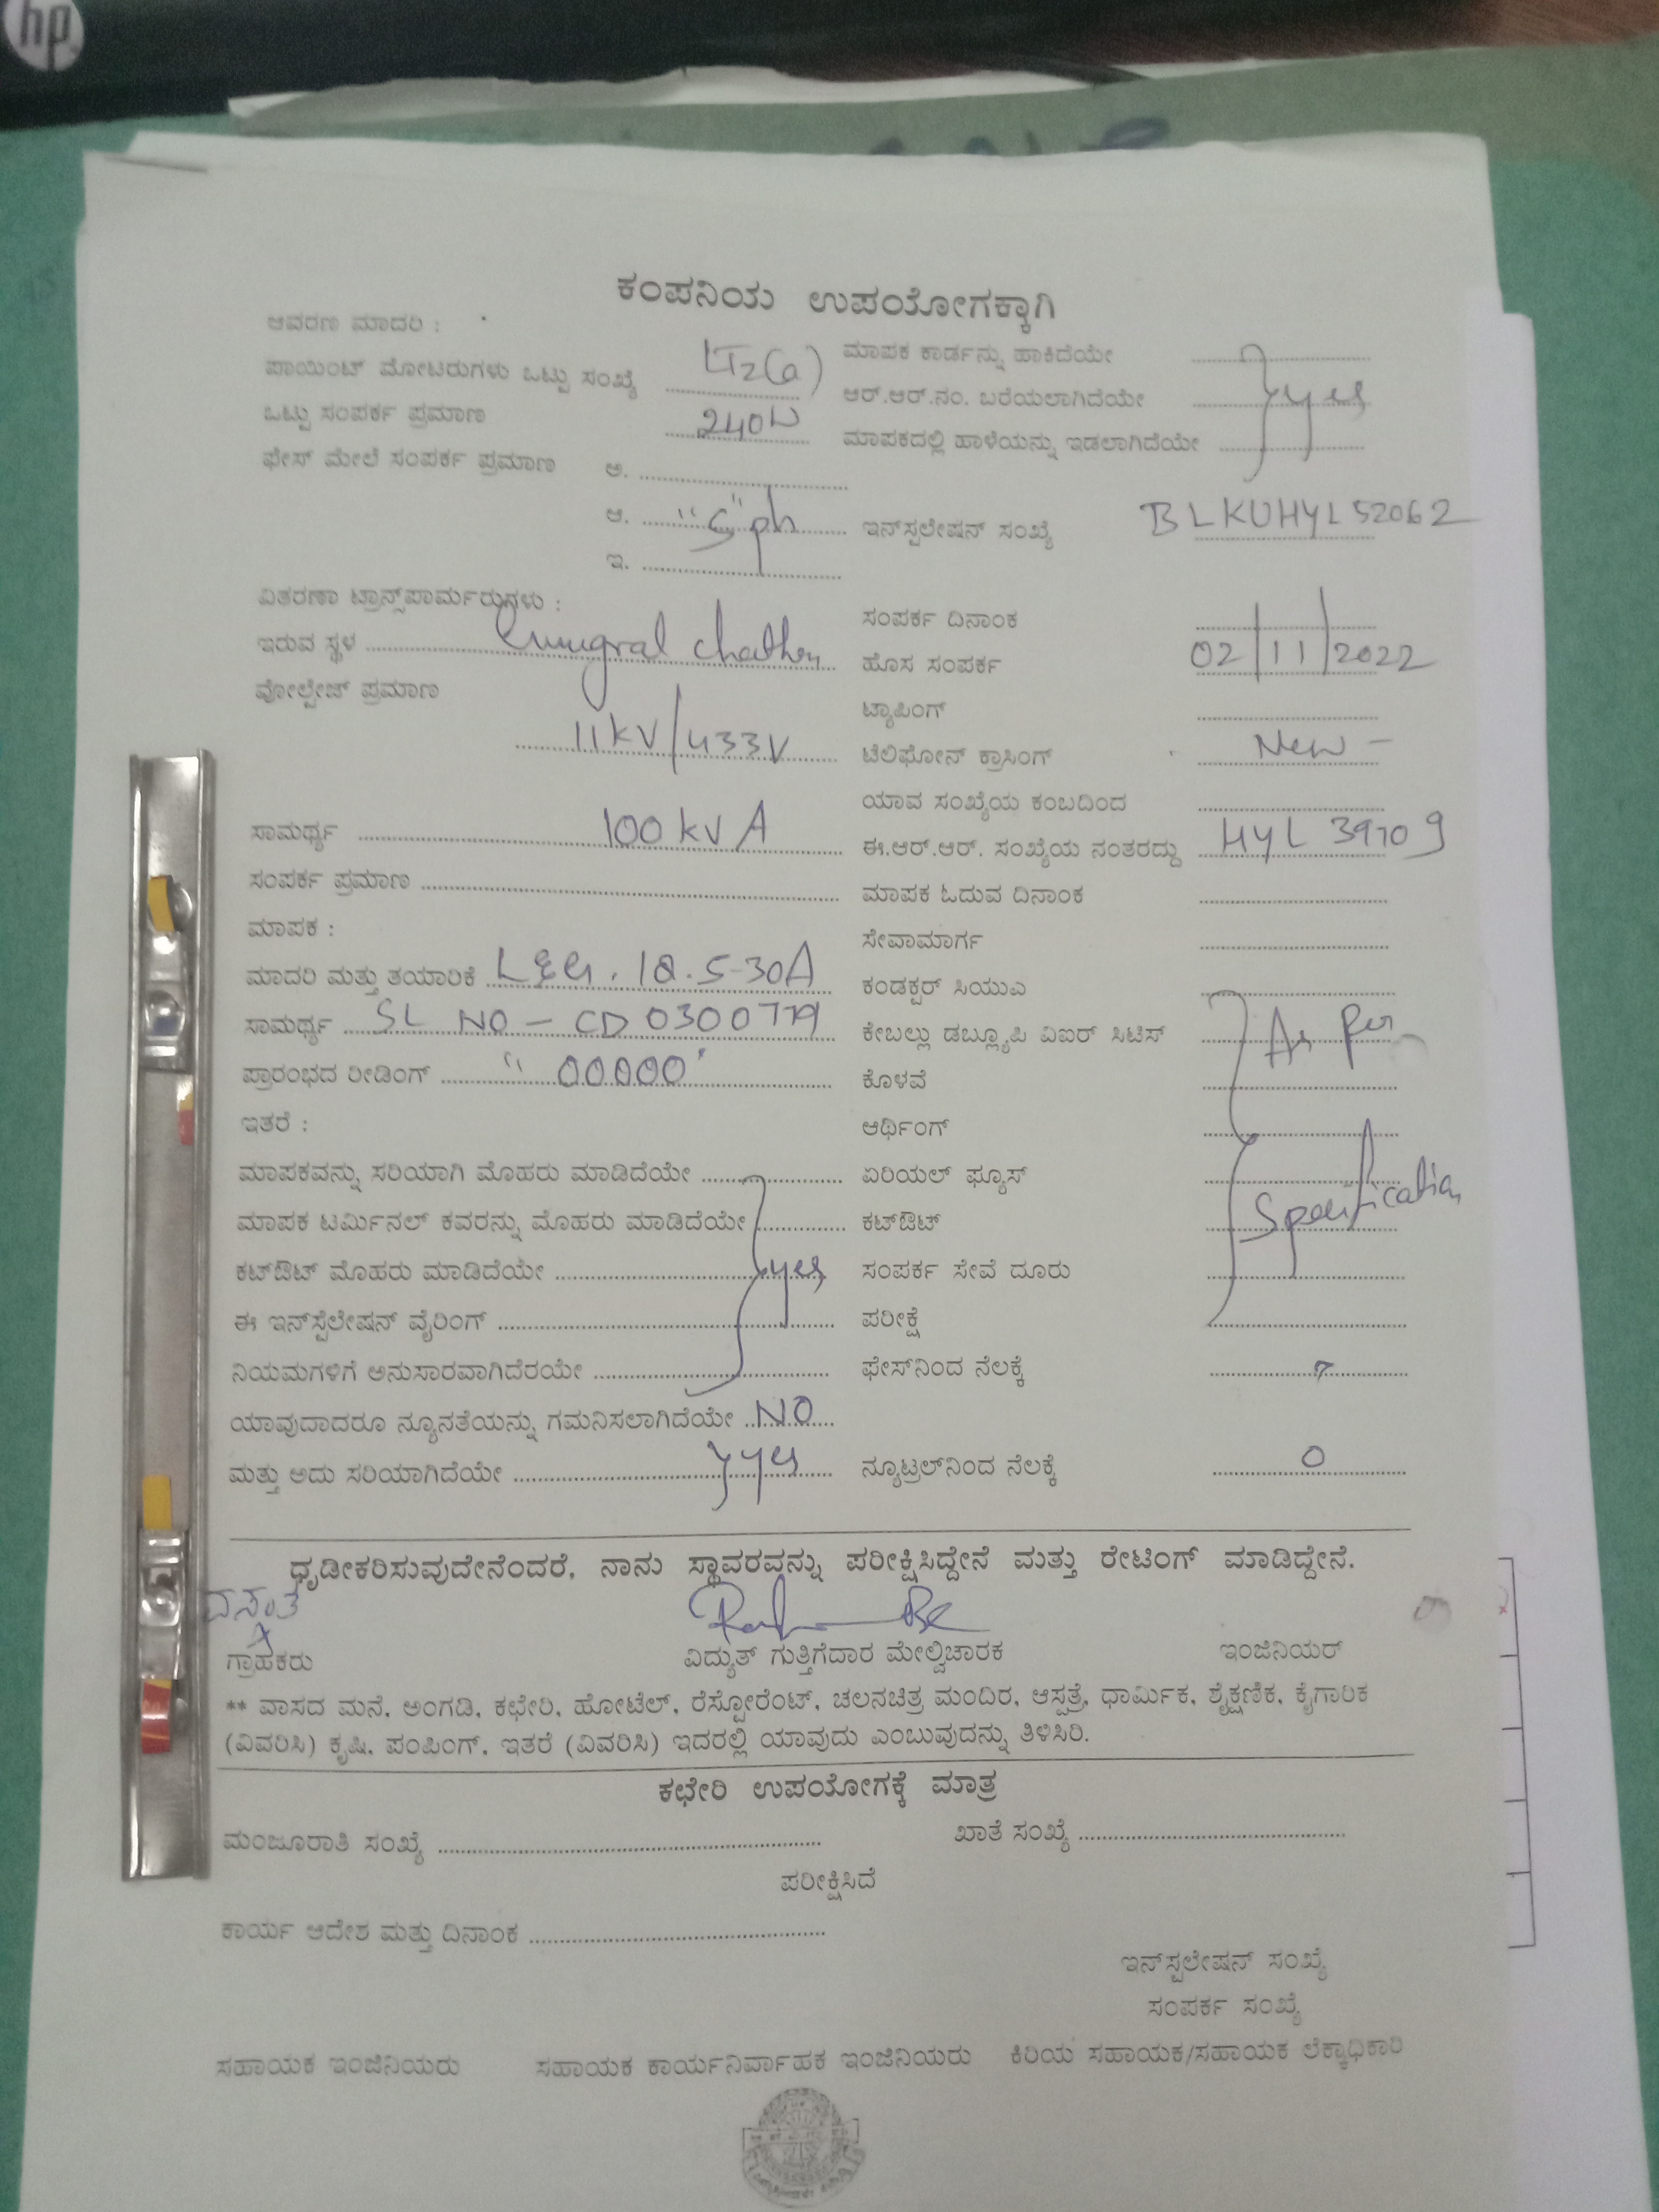 hp
ಕಂಪನಿಯ ಉಪಯೋಗಕ್ಕಾಗಿ
ಆವರಣ ಮಾದರಿ :
ಪಾಯಿಂಟ್ ಮೋಟರುಗಳು ಒಟ್ಟು ಸಂಖ್ಯೆ LT2(a) ಮಾಪಕ ಕಾರ್ಡನ್ನು ಹಾಕಿದೆಯೇ
ಒಟ್ಟು ಸಂಪರ್ಕ ಪ್ರಮಾಣ 240W ಆರ್.ಆರ್.ನಂ. ಬರೆಯಲಾಗಿದೆಯೇ yes
ಫೇಸ್ ಮೇಲೆ ಸಂಪರ್ಕ ಪ್ರಮಾಣ ಅ. ಮಾಪಕದಲ್ಲಿ ಹಾಳೆಯನ್ನು ಇಡಲಾಗಿದೆಯೇ
ಆ. "S" ph ಇನ್‌ಸ್ಪಲೇಷನ್ ಸಂಖ್ಯೆ BLKUHYL52062
ಇ.
ವಿತರಣಾ ಟ್ರಾನ್ಸ್‌ಪಾರ್ಮರುಗಳು : ಸಂಪರ್ಕ ದಿನಾಂಕ
ಇರುವ ಸ್ಥಳ ಹೊಸ ಸಂಪರ್ಕ 02/11/2022
ವೋಲ್ಟೇಜ್ ಪ್ರಮಾಣ ಟ್ಯಾಪಿಂಗ್
11kV/433V ಟೆಲಿಫೋನ್ ಕ್ರಾಸಿಂಗ್ New -
ಯಾವ ಸಂಖ್ಯೆಯ ಕಂಬದಿಂದ
ಸಾಮರ್ಥ್ಯ 100 kVA ಈ.ಆರ್.ಆರ್. ಸಂಖ್ಯೆಯ ನಂತರದ್ದು HYL 39709
ಸಂಪರ್ಕ ಪ್ರಮಾಣ ಮಾಪಕ ಓದುವ ದಿನಾಂಕ
ಮಾಪಕ : ಸೇವಾಮಾರ್ಗ
ಮಾದರಿ ಮತ್ತು ತಯಾರಿಕೆ 5-30A ಕಂಡಕ್ಟರ್ ಸಿಯುಎ
ಸಾಮರ್ಥ್ಯ SL NO - CD ಕೇಬಲ್ಲು ಡಬ್ಲ್ಯೂಪಿ ವಿಐರ್ ಸಿಟಿಸ್ As Per
ಪ್ರಾರಂಭದ ರೀಡಿಂಗ್ "00000" ಕೊಳವೆ
ಇತರೆ : ಆರ್ಥಿಂಗ್
ಮಾಪಕವನ್ನು ಸರಿಯಾಗಿ ಮೊಹರು ಮಾಡಿದೆಯೇ ಏರಿಯಲ್ ಫ್ಯೂಸ್
ಮಾಪಕ ಟರ್ಮಿನಲ್ ಕವರನ್ನು ಮೊಹರು ಮಾಡಿದೆಯೇ ಕಟ್‌ಔಟ್ Specification
ಕಟ್‌ಔಟ್ ಮೊಹರು ಮಾಡಿದೆಯೇ yes ಸಂಪರ್ಕ ಸೇವೆ ದೂರು
ಈ ಇನ್‌ಸ್ಪೆಲೇಷನ್ ವೈರಿಂಗ್ ಪರೀಕ್ಷೆ
ನಿಯಮಗಳಿಗೆ ಅನುಸಾರವಾಗಿದೆರಯೇ ಫೇಸ್‌ನಿಂದ ನೆಲಕ್ಕೆ
ಯಾವುದಾದರೂ ನ್ಯೂನತೆಯನ್ನು ಗಮನಿಸಲಾಗಿದೆಯೇ NO
ಮತ್ತು ಅದು ಸರಿಯಾಗಿದೆಯೇ yes ನ್ಯೂಟ್ರಲ್‌ನಿಂದ ನೆಲಕ್ಕೆ 0
ಧೃಡೀಕರಿಸುವುದೇನೆಂದರೆ, ನಾನು ಸ್ಥಾವರವನ್ನು ಪರೀಕ್ಷಿಸಿದ್ದೇನೆ ಮತ್ತು ರೇಟಿಂಗ್ ಮಾಡಿದ್ದೇನೆ.
ಗ್ರಾಹಕರು ವಿದ್ಯುತ್ ಗುತ್ತಿಗೆದಾರ ಮೇಲ್ವಿಚಾರಕ ಇಂಜಿನಿಯರ್
** ವಾಸದ ಮನೆ, ಅಂಗಡಿ, ಕಛೇರಿ, ಹೋಟೆಲ್, ರೆಸ್ಟೋರೆಂಟ್, ಚಲನಚಿತ್ರ ಮಂದಿರ, ಆಸ್ಪತ್ರೆ, ಧಾರ್ಮಿಕ, ಶೈಕ್ಷಣಿಕ, ಕೈಗಾರಿಕ
(ವಿವರಿಸಿ) ಕೃಷಿ, ಪಂಪಿಂಗ್, ಇತರೆ (ವಿವರಿಸಿ) ಇದರಲ್ಲಿ ಯಾವುದು ಎಂಬುವುದನ್ನು ತಿಳಿಸಿರಿ.
ಕಛೇರಿ ಉಪಯೋಗಕ್ಕೆ ಮಾತ್ರ
ಮಂಜೂರಾತಿ ಸಂಖ್ಯೆ ಖಾತೆ ಸಂಖ್ಯೆ
ಪರೀಕ್ಷಿಸಿದೆ
ಕಾರ್ಯ ಆದೇಶ ಮತ್ತು ದಿನಾಂಕ
ಇನ್‌ಸ್ಪಲೇಷನ್ ಸಂಖ್ಯೆ
ಸಂಪರ್ಕ ಸಂಖ್ಯೆ
ಸಹಾಯಕ ಇಂಜಿನಿಯರು ಸಹಾಯಕ ಕಾರ್ಯನಿರ್ವಾಹಕ ಇಂಜಿನಿಯರು ಕಿರಿಯ ಸಹಾಯಕ/ಸಹಾಯಕ ಲೆಕ್ಕಾಧಿಕಾರಿ